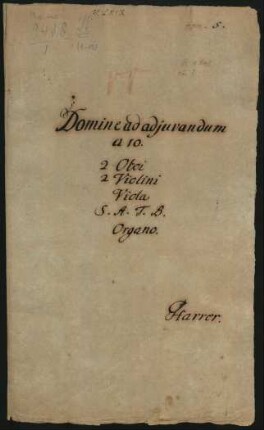 Domine ad adjuvandum
a 10.
2 Oboi
2 Violini
Viola
S. A. T. B.
Organo.
Harrer.